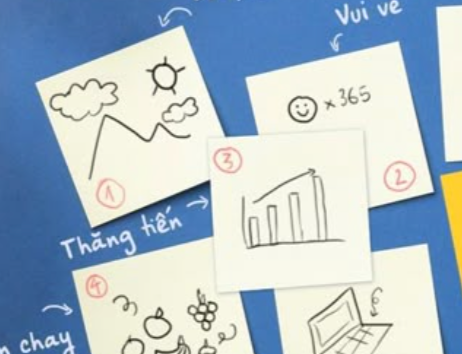 Vui vẻ
x 365
1
3
2
Thăng tiến
4
chay